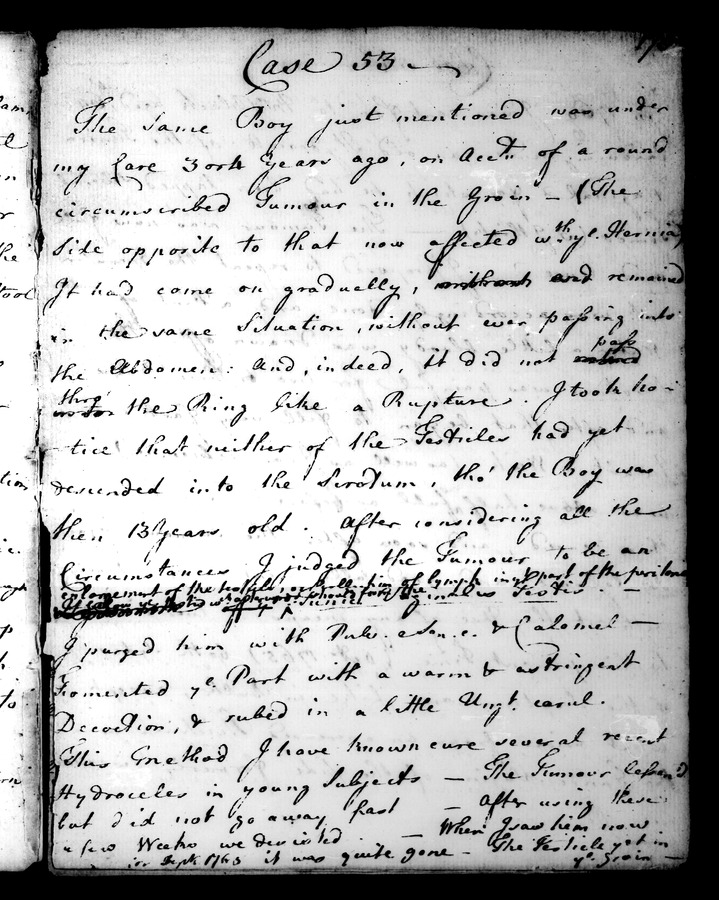 Case 53
The same Boy just mentioned was under
my Care 3 or 4 Years ago, on Acctt. of a round
circumscribed Tumour in the Groin — (The
Side opposite to that now affected wth. ye. Hernia)
It had come on gradually, without and remained
in the same Situation, without ever passing into
pass
the Abdomen: And, indeed, it did not
thro'
the Ring like a Rupture. I took no-
-tice that neither of the Testicles had yet
descended into the Scrotum, tho' the Boy was
then 13 Years old. After considering all the
Circumstances I judged the Tumour to be an
enlargement of the testicle, or collection of lymph in yt. part of the peritone
Testis —
I purged him with Pulv. e Sen. c. & Calomel —
Fomented ye. Part with a warm & astringent
Decoction, & rubed in a little Ungt. cærul.
This Method I have known cure several recent
Hydroceles in young Subjects — The Tumour lessen'd
but did not go away fast — After using these
a few Weeks we desisted. — When I saw him now
in Sept. 1763 it was quite gone — The Testicle yet in
ye. Groin —